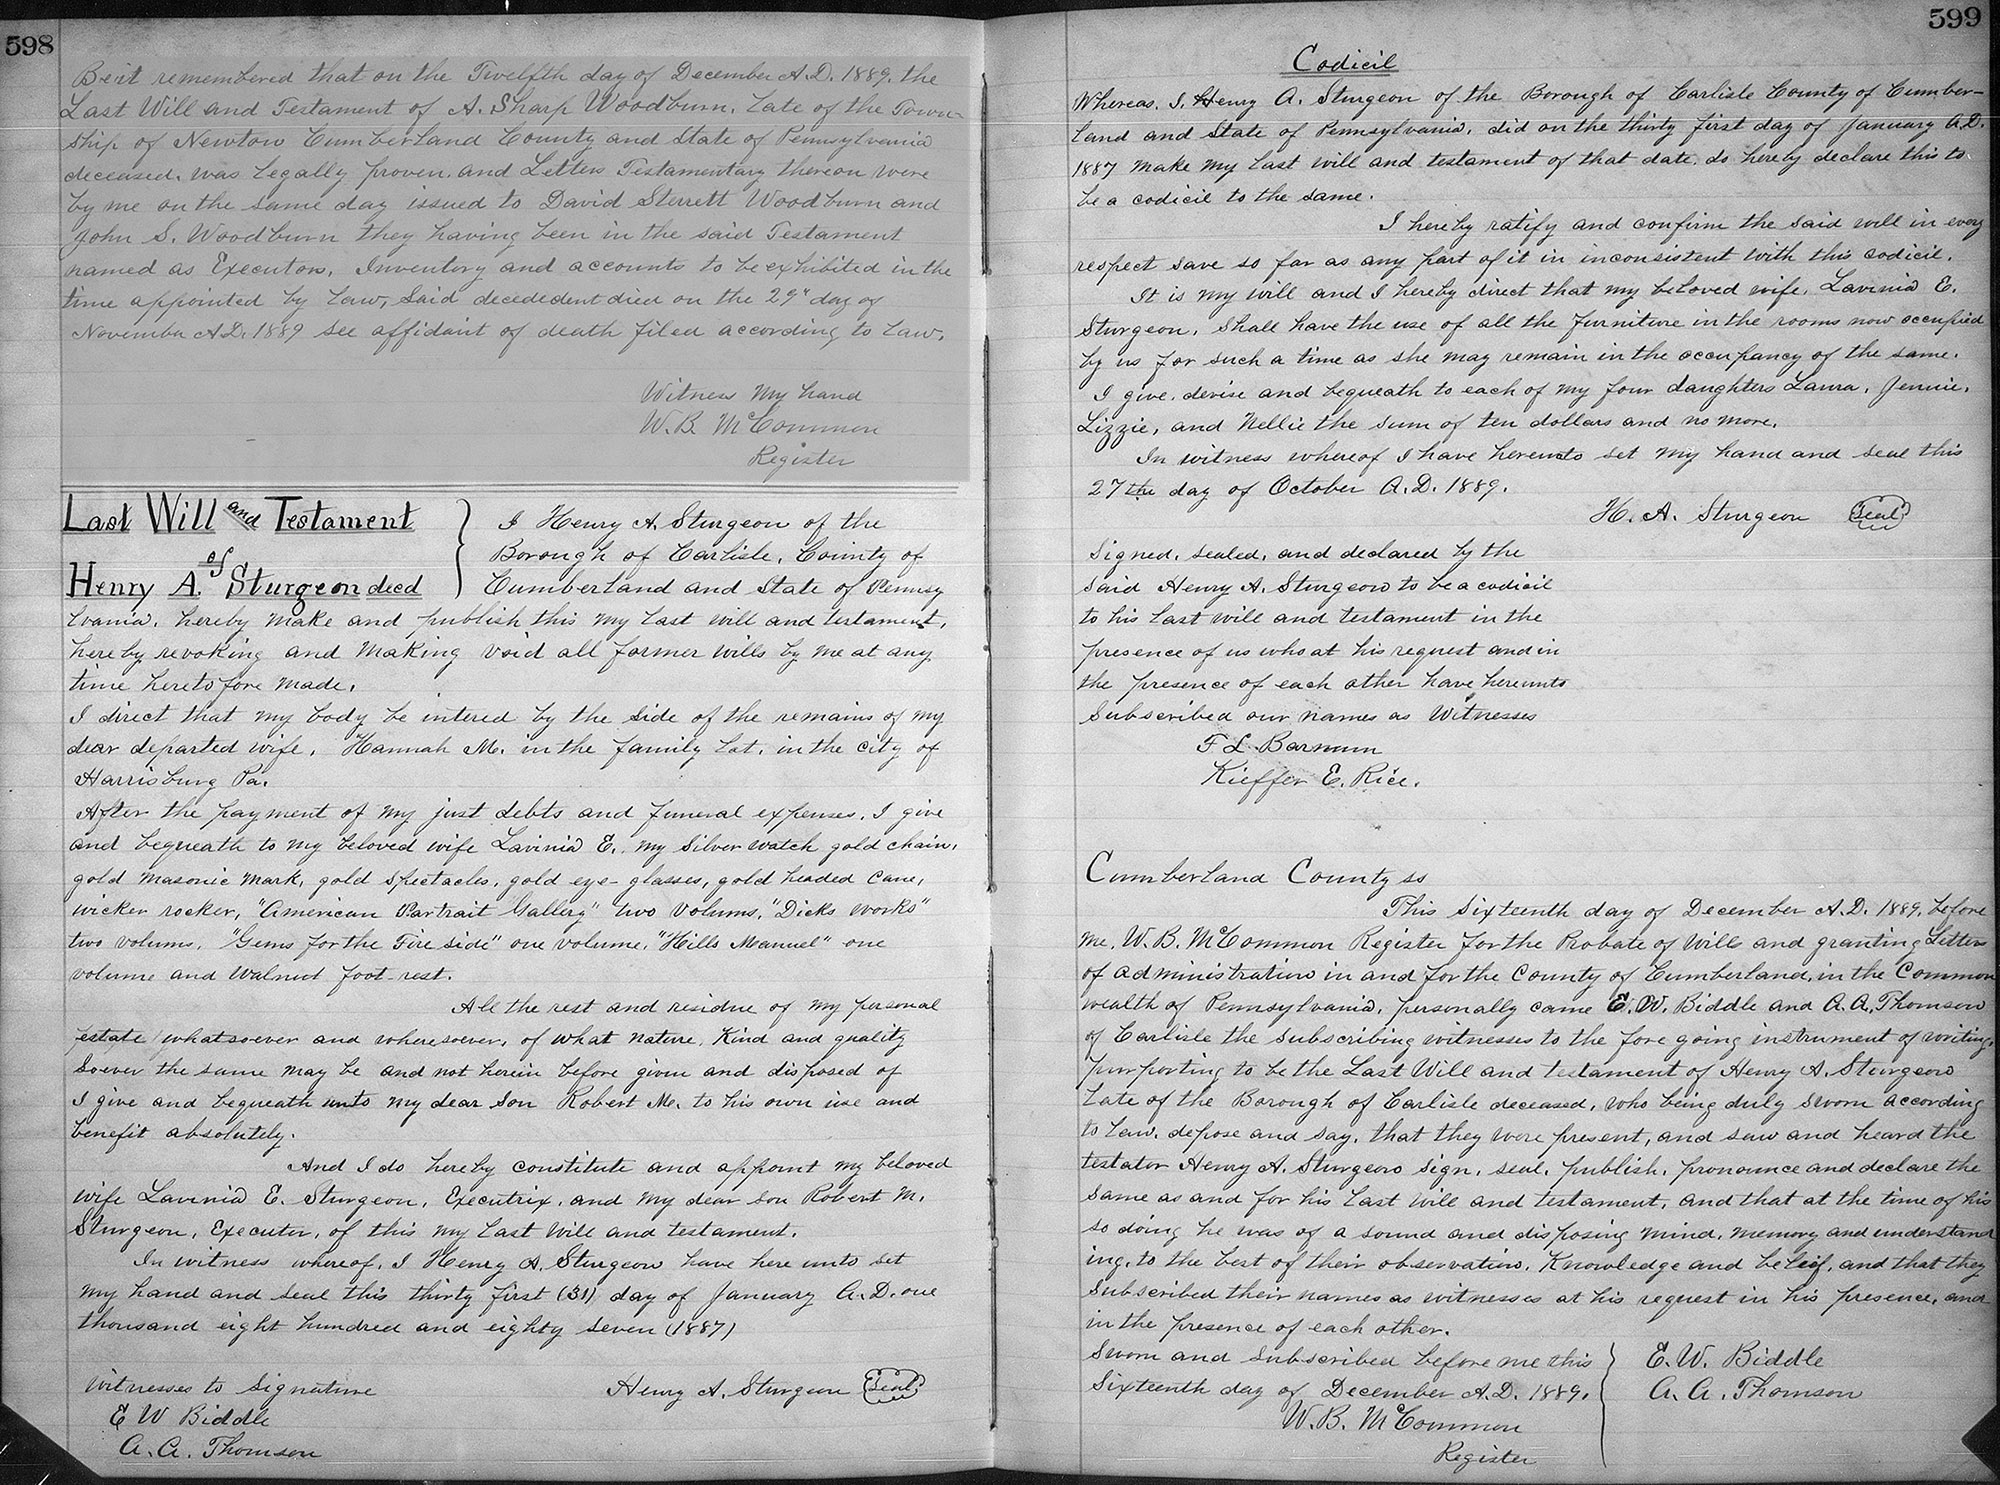 598
Be it remembered that on the Twelfth day of December A.D. 1889. the
Last Will and Testament of A. Sharp Woodburn. Late of the Town-
ship of Newton Cumberland County and State of Pennsylvania
deceased, was legally proven. and Letters Testamentary thereon were
by me on the same day issued to David Sterrett Woodburn and
John S. Woodburn they having been in the said Testament
named as Executors. Inventory and accounts to be exhibited in the
time appointed by Law, Said decededent died on the 29" day of
November A.D. 1889 see affidavit of death filed according to Law.
Witness my hand
W. B. McCommon
Register
Last Will and Testament
of
Henry A. Sturgeon decd
I Henry A. Sturgeon of the
Borough of Carlisle, County of
Cumberland and State of Pennsy
lvania, hereby make and publish this my last will and testament,
hereby revoking and making void all former wills by me at any
time heretofore made.
I direct that my body be intered by the side of the remains of my
dear departed wife, Hannah M. in the family lot, in the city of
Harrisburg Pa.
After the payment of my just debts and funeral expenses, I give
and bequeath to my beloved wife Lavinia E. my silver watch gold chain,
gold masonic mark, gold spectacles, gold eye-glasses, gold headed cane,
wicker rocker, "American Portrait Gallery" two volums, "Dicks works"
two volums, "Gems for the Fire side" one volume, "Hills Manuel" one
volume and walnut foot-rest.
All the rest and residue of my personal
estate whatsoever and wheresoever, of what nature, kind and quality
soever the same may be and not herein before given and disposed of
I give and bequeath unto my dear son Robert M. to his own use and
benefit absolutely.
And I do hereby constitute and appoint my beloved
wife Lavinia E. Sturgeon, Executrix, and my dear son Robert M.
Sturgeon, Executer, of this my last will and testament.
In witness whereof, I Henry A. Sturgeon have here unto set
my hand and seal this thirty first (31) day of January A.D. one
thousand eight hundred and eighty seven (1887)
witnesses to signature
Henry A. Sturgeon Seal
E W Biddle
A. A. Thomson
599
Codicil
Whereas, I, Henry A. Sturgeon of the Borough of Carlisle County of Cumber-
land and State of Pennsylvania, did on the thirty first day of January A.D.
1887 make my last will and testament of that date. do hereby declare this to
be a codicil to the same.
I hereby ratify and confirm the said will in every
respect save so far as any part of it in inconsistent with this codicil.
It is my will and I hereby direct that my beloved wife, Lavinia E.
Sturgeon, shall have the use of all the furniture in the rooms now occupied
by us for such a time as she may remain in the occupancy of the same.
I give, devise and bequeath to each of my four daughters Laura, Jennie,
Lizzie, and Nellie the sum of ten dollars and no more.
In witness whereof I have hereunto set my hand and seal this
27th day of October A.D. 1889.
H. A. Sturgeon Seal
Signed, sealed, and declared by the
said Henry A. Sturgeon to be a codicil
to his last will and testament in the
presence of us who at his request and in
the presence of each other have hereunto
subscribed our names as Witnesses
F L Barnum
Kieffer E. Rice.
Cumberland County ss
This Sixteenth day of December A.D. 1889, before
me, W. B. McCommon Register for the Probate of Wills and granting Letters
of administration in and for the County of Cumberland, in the Common
wealth of Pennsylvania, personally came E. W. Biddle and A. A. Thomson
of Carlisle the subscribing witnesses to the fore going instrument of writing,
purporting to be the Last Will and testament of Henry A. Sturgeon
Late of the Borough of Carlisle deceased, who being duly sworn according
to law, depose and say, that they were present, and saw and heard the
testator Henry A. Sturgeon sign, seal, publish, pronounce and declare the
same as and for his last will and testament, and that at the time of his
so doing he was of a sound and disposing mind, memory and understand
ing, to the best of their observation, knowledge and belief, and that they
subscribed their names as witnesses at his request in his presence, and
in the presence of each other.
Sworn and subscribed before me this
Sixteenth day of December A.D. 1889.
W. B. McCommon
Register
E. W. Biddle
A. A. Thomson